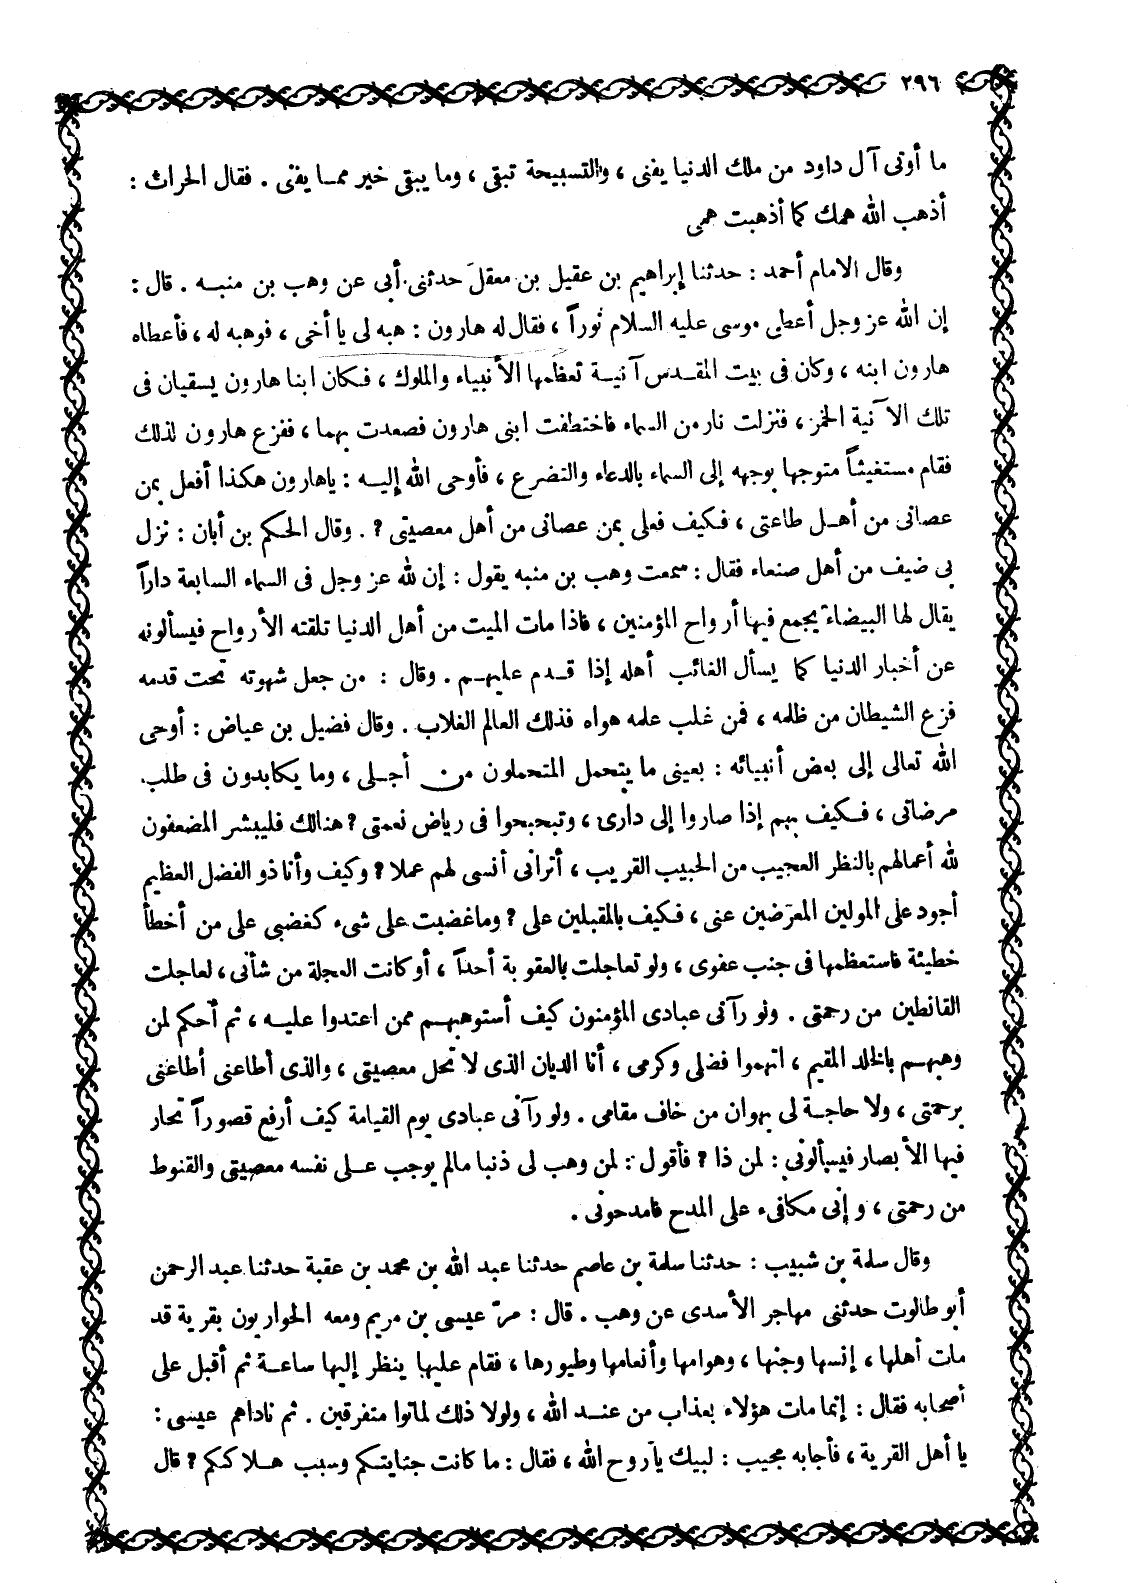 ٢٩٦
ما أوتى آل داود من ملك الدنيا يفنى ، والتسبيحة تبقى ، وما يبقى خير ممـا يفنى . فقال الحراث :
أذهب الله همك كما أذهبت همى
وقال الامام أحمد : حدثنا إبراهيم بن عقيل بن معقل حدثنى أبى عن وهب بن منبـه . قال :
إن الله عز وجل أعطى موسى عليه السلام نوراً ، فقال له هارون : هبه لى يا أخى ، فوهبه له ، فأعطاه
هارون ابنه ، وكان فى بيت المقـدس آنيـة تعظمها الأنبياء والملوك ، فـكان ابنا هارون يسقيان فى
تلك الآنية الخمر ، فنزلت نار من السماء فاختطفت ابنى هارون فصعدت بهما ، ففزع هارون لذلك
فقام مستغيثـاً متوجها بوجهه إلى السماء بالدعاء والتضرع ، فأوحى الله إليـه : ياهارون هكذا أفعل بمن
عصانى من أهـل طاعتى ، فـكيف فعلى بمن عصانى من أهل معصيتى ؟ . وقال الحكم بن أبان : نزل
بى ضيف من أهل صنعاء فقال : سمعت وهب بن منبه يقول : إن لله عز وجل فى السماء السابعة داراً
يقال لها البيضاء يجمع فيها أرواح المؤمنين ، فاذا مات الميت من أهل الدنيا تلقته الأرواح فيسألونه
عن أخبار الدنيا كما يسأل الغائب أهله إذا قـدم عليهـم . وقال : من جعل شهوته تحت قدمه
فزع الشيطان من ظله ، فمن غلب علمه هواه فذلك العالم الغلاب . وقال فضيل بن عياض : أوحى
الله تعالى إلى بعض أنبيائه : بعينى ما يتحمل المتحملون من أجـلى ، وما يكابدون فى طلب
مرضاتى ، فـكيف بهم إذا صاروا إلى دارى ، وتبحبحوا فى رياض نعمتى ؟ هنالك فليبشر المضعفون
لله أعمالهم بالنظر العجيب من الحبيب القريب ، أترانى أنسى لهم عملا ؟ وكيف وأنا ذو الفضل العظيم
أجود على المولين المعرضين عنى ، فـكيف بالمقبلين على ؟ وماغضبت على شىء كغضبى على من أخطأ
خطيئة فاستعظمها فى جنب عفوى ، ولو تعاجلت بالعقوبة أحداً ، أو كانت العجلة من شأنى ، لعاجلت
القانطين من رحمتى . ولو رآنى عبادى المؤمنون كيف أستوهبهـم ممن اعتدوا عليـه ، ثم أحكم لمن
وهبهـم بالخلد المقيم ، اتهموا فضلى وكرمى ، أنا الديان الذى لا تحل معصيتى ، والذى أطاعنى أطاعنى
برحمتى ، ولا حاجـة لى بهوان من خاف مقامى . ولو رآنى عبادى يوم القيامة كيف أرفع قصوراً تحار
فيها الأبصار فيسألونى : لمن ذا ؟ فأقول : لمن وهب لى ذنبا مالم يوجب عـلى نفسه معصيتى والقنوط
من رحمتى ، وإنى مكافىء على المدح فامدحونى .
وقال سلمة بن شبيب : حدثنا سلمة بن عاصم حدثنا عبد الله بن محمد بن عقبة حدثنا عبد الرحمن
أبو طالوت حدثنى مهاجر الأسدى عن وهب . قال : مرّ عيسى بن مريم ومعه الحواريون بقرية قد
مات أهلها ، إنسها وجنها ، وهوامها وأنعامها وطيورها ، فقام عليها ينظر إليها ساعـة ثم أقبل على
أصحابه فقال : إنما مات هؤلاء بعذاب من عنـد الله ، ولولا ذلك لماتوا متفرقين . ثم ناداهم عيسى :
يا أهل القرية ، فأجابه مجيب : لبيك ياروح الله ، فقال : ما كانت جنايتـكم وسبب هـلاككم ؟ قال